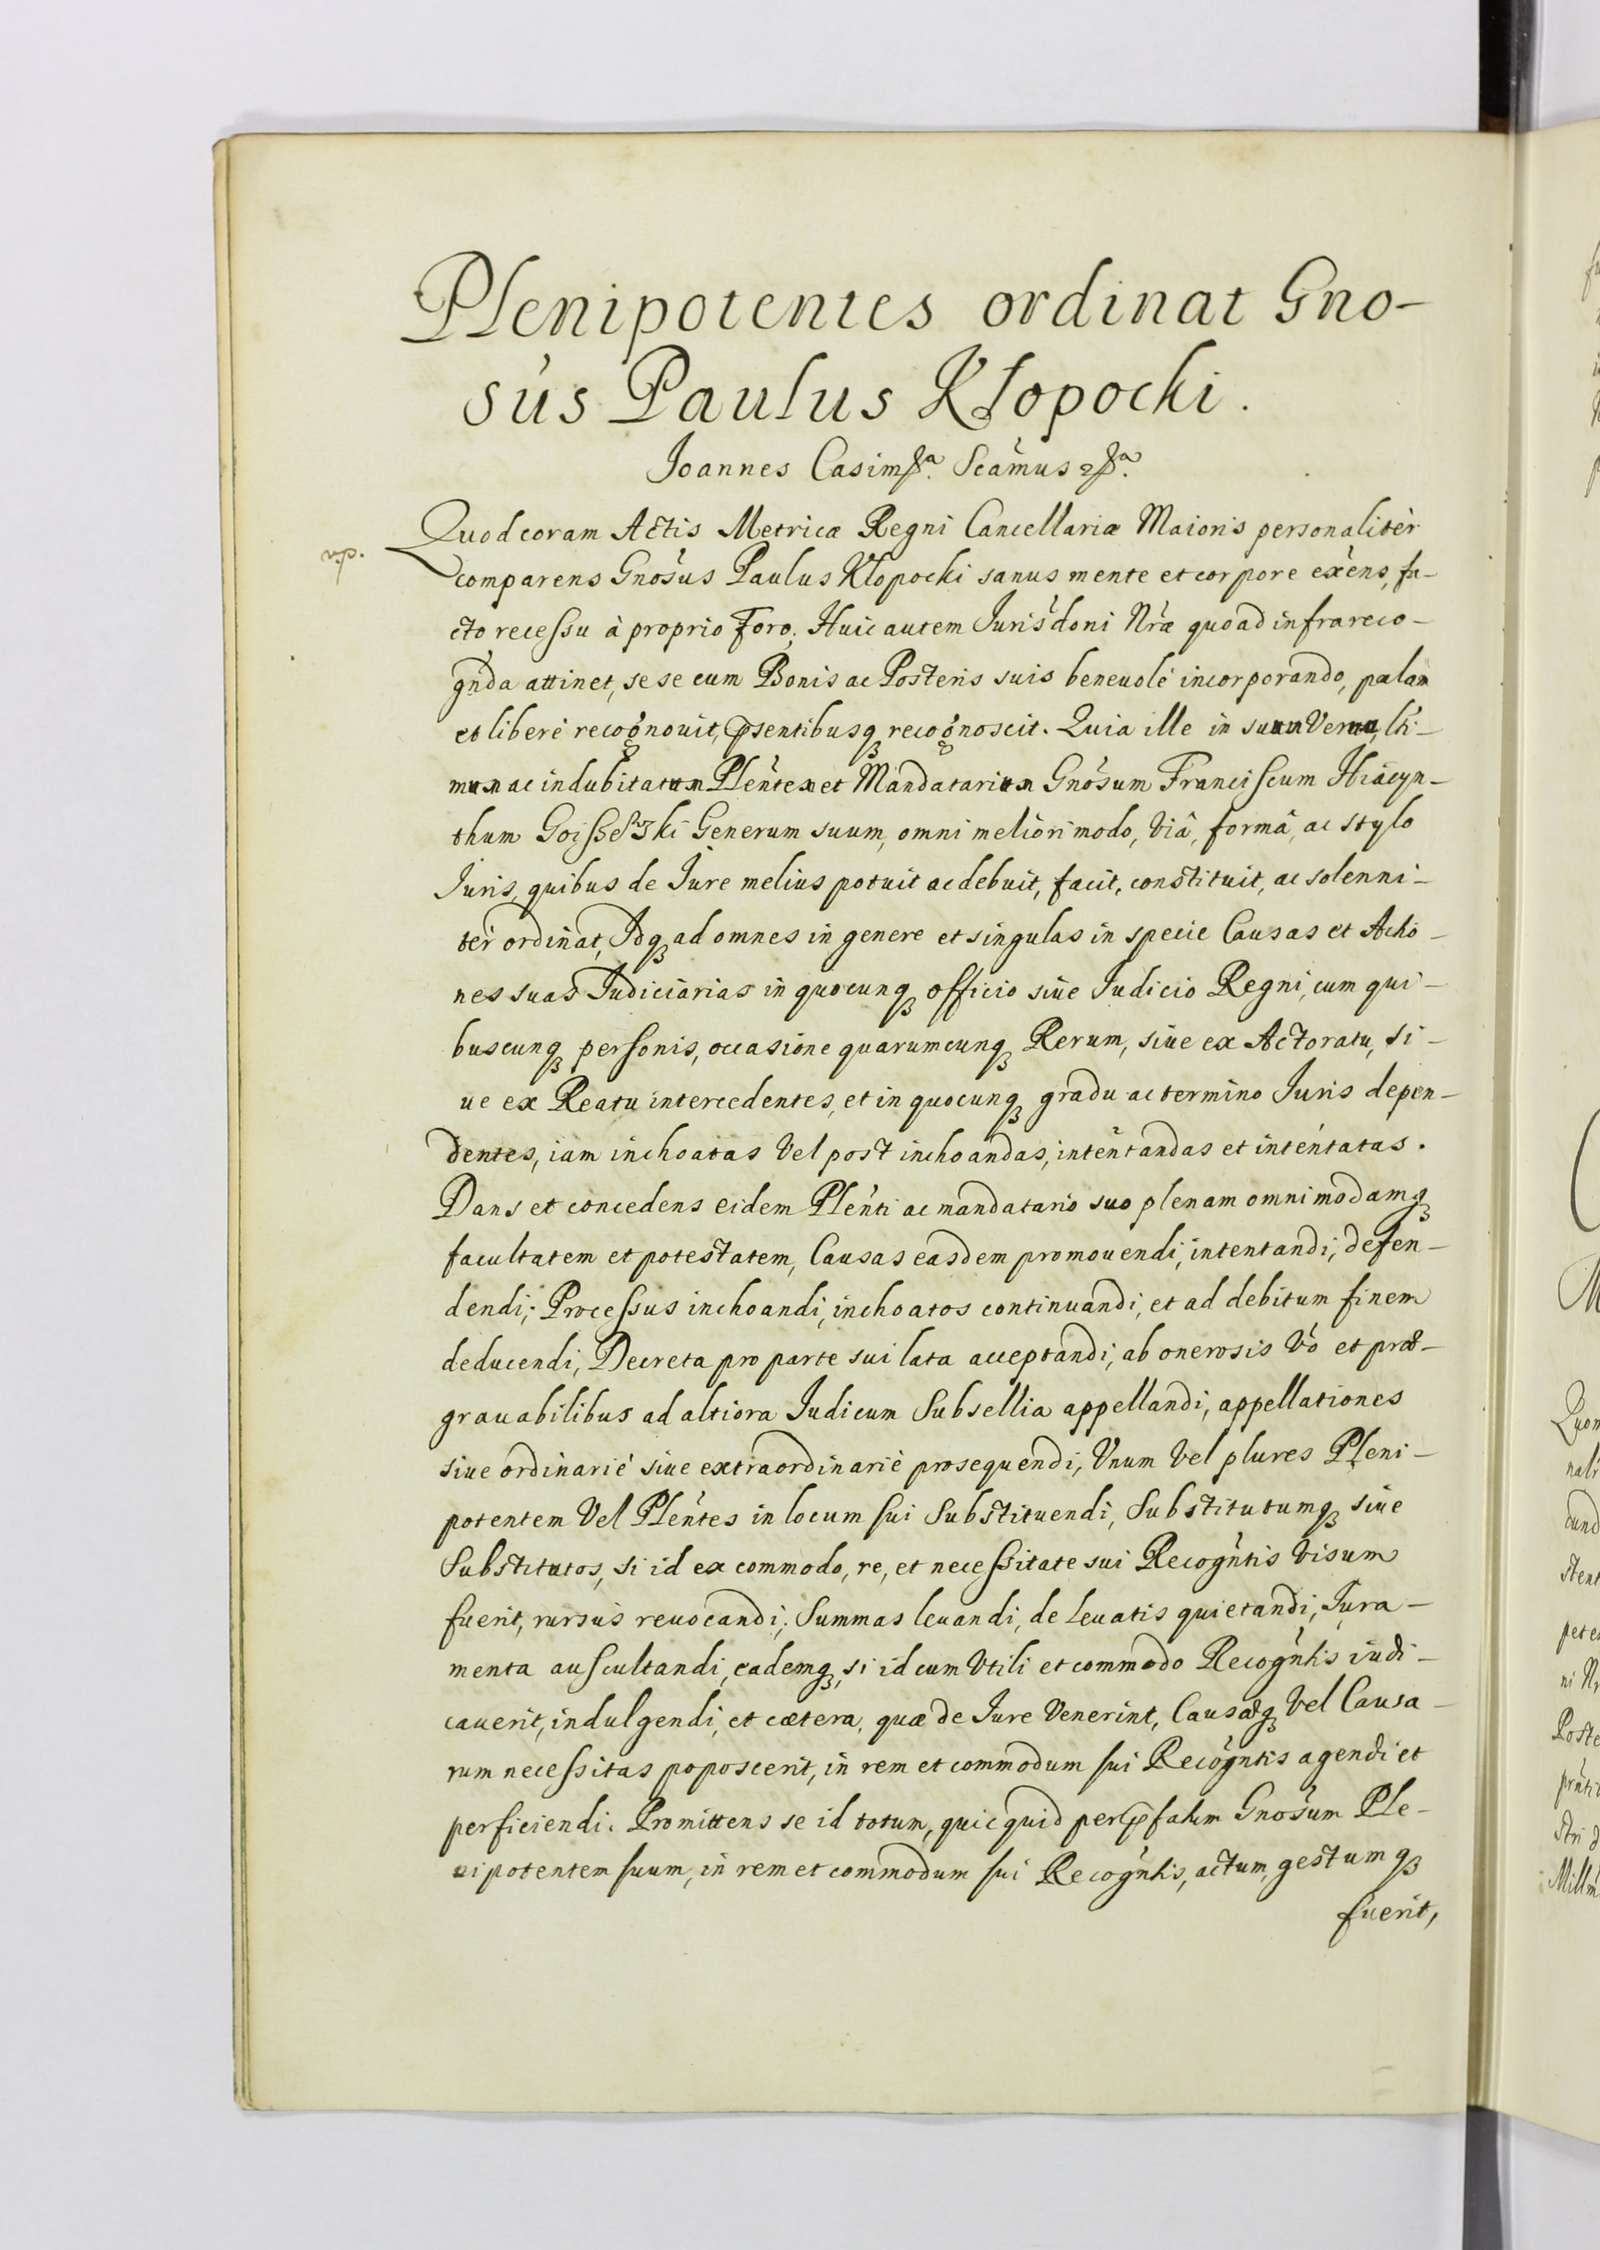 Plenipotentes ordinat Gno-
sus Paulus Kłopocki.
Joannes Casim Scamus
vp.
Quod coram Actis Metricæ Regni Cancellariæ Maioris personalitèr
comparens Gnosus Paulus Kłopocki sanus mente et corpore exèns, fa-
cto recessu à proprio Foro, Huic autem Jurisdoni Nræ quoad infrareco-
gnda attinet, se se cum Bonis ac Posteris suis beneuolè incorporando, palam
et liberè recognouit, psentibusq recognoscit. Quia ille in suum Verum, lti-
mum ac indubitatum Plentem et Mandatarium Gnosum Franciscum Hiacyn-
thum Generum suum, omni meliori modo, viâ, formâ, ac stylo
Juris, quibus de Jure melius potuit ac debuit, facit, constituit, ac solenni-
tèr ordinat, Idq ad omnes in genere et singulas in specie Causas et Actio-
nes suas Judiciarias in quocunq officio siue Judicio Regni, cum qui-
buscunq personis, occasione quarumcunq Rerum, siue ex Actoratu, si-
ue ex Reatu intercedentes, et in quocunq gradu ac termino Juris depen-
dentes, iam inchoatas vel post inchoandas, intentandas et intentatas.
Dans et concedens eidem Plenti ac mandatario suo plenam omnimodamq
facultatem et potestatem, Causas easdem promouendi, intentandi, defen-
dendi; Processus inchoandi, inchoatos continuandi, et ad debitum finem
deducendi, Decreta pro parte sui lata acceptandi, ab onerosis vò et præ-
grauabilibus ad altiora Judicum Subsellia appellandi, appellationes
siue ordinariè siue extraordinariè prosequendi, Vnum vel plures Pleni-
potentem vel Plentes in locum sui Substituendi, Substitutumq siue
Substitutos, si id ex commodo, re, et necessitate sui Recogntis visum
fuerit, rursus reuocandi; Summas leuandi, de leuatis quietandi, Jura-
menta auscultandi, eademq, si id cum Vtili et commodo Recogntis iudi-
cauerit, indulgendi, et cætera, quæ de Jure Venerint, Causæq vel Causa-
rum necessitas poposcerit, in rem et commodum sui Recogntis agendi et
perficiendi. Promittens se id totum, quicquid per pfatum Gnosum Ple-
nipotentem suum, in rem et commodum sui Recogntis, actum, gestumq
fuerit,